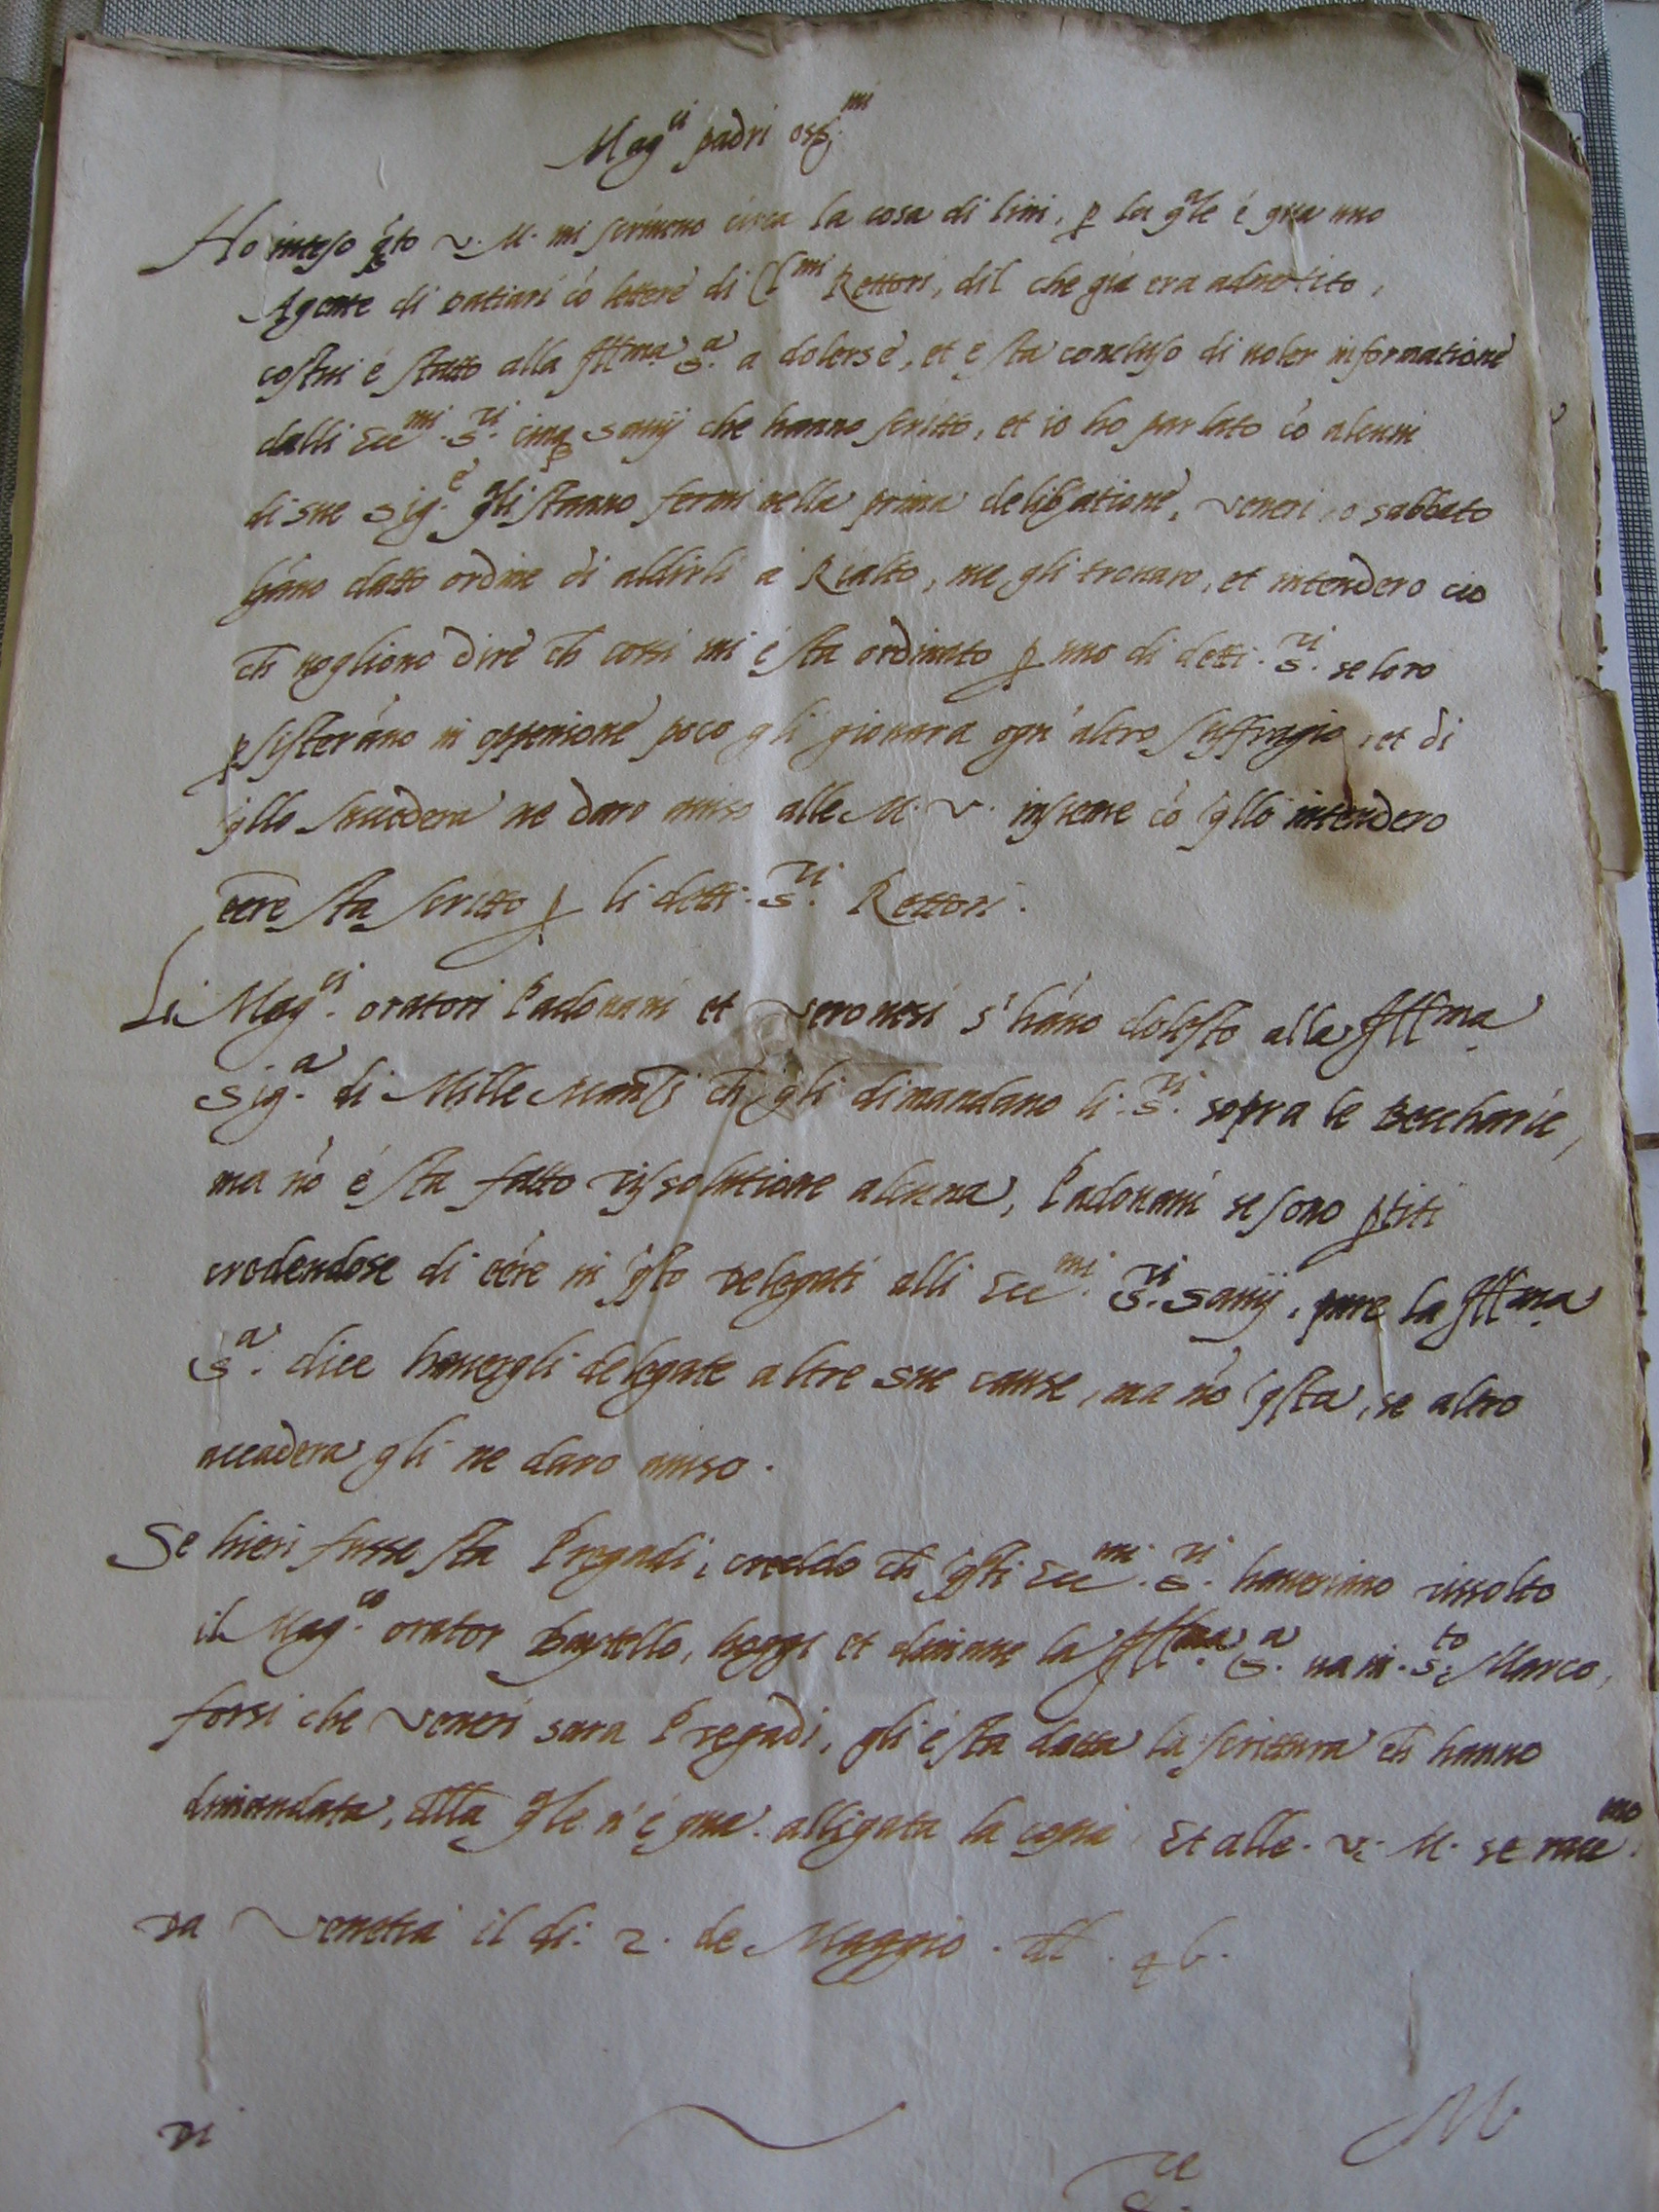 Mag.ci padri oss.mi
Ho inteso q̃to v. M. mi scriveno circa la cosa di lini, p la q̃le é qua uno
Agente di datiari cõ lettere di Cl.mi Rettori, dil che gia era advertito,
costui é statto alla Ill.ma S.a a dolerse, et e sta concluso di voler informatione
dalli Ecc.mi S.ri cinq; Savij che hanno scritto, et io ho parlato cõ alcuni
di sue Sig.e gli stanno fermi nella prima delib̃atione, veneri o sabbato
hãno datto ordine di aldirli a Rialto, me gli trovaro, et intendero cio
ch̃ vogliono dire ch̃ cossi mi é sta ordinato p uno di detti S.ri se loro
psisterãno in oppenione poco gli giovara ogn'altro suffragio, et di
q̃llo succedera ne daro aviso alle M. v. insieme cõ q̃llo intendero
eẽre sta scritto p li detti S.ri Rettori.
Li Mag.ci oratori Padovani et Veronesi s'hãno dolesto alla Ill.ma
Sig.a di Mille ch̃ gli dimandano li S.ri sopra le Beccharie,
ma nõ é sta fatto rissolutione alcuna, Padovani se sono ptiti
credendose di eẽre in q̃sto delegati alli Ecc.mi S.ri Savij, pure la Ill.ma
S.a dice havergli delegate altre sue cause, ma nõ q̃sta, se altro
accadera gli ne daro aviso.
Se hieri fusse sta Pregadi, credo ch̃ q̃sti Ecc.mi S.ri haveriano rissolto
il Mag.co orator, hoggi et dimane la Ill.ma S.a va in S.to Marco,
forsi che veneri sara Pregadi, gli é sta datta la scrittura ch̃ hanno
dimandata, della q̃le n'é qua alligata la copia Et alle v. M. se racc.mo
Da Venetia il di 2 de Maggio dil 46.
Di v. M.